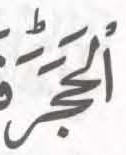 الْحَجَرَؕ